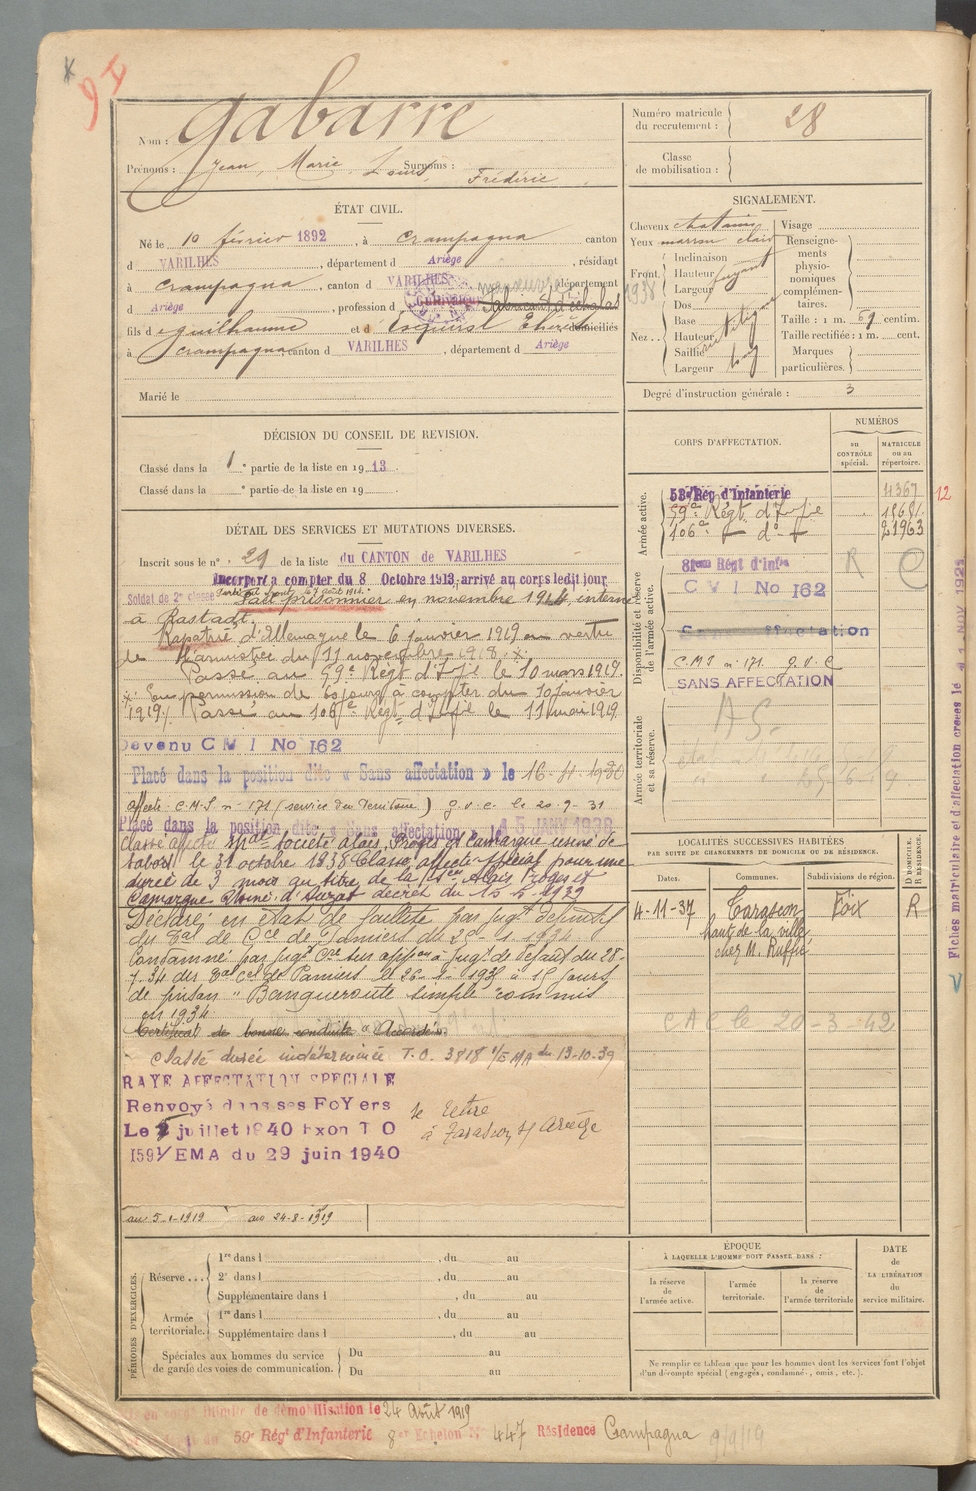 94
Nom : Gabarre
Prénoms : Jean, Marie, Louis, Surnoms : Frédéric
Numéro matricule du recrutement : 28
Classe de mobilisation :
ÉTAT CIVIL.
Né le 10 février 1892, à Crampagna canton
d VARILHES, département d Ariège, résidant
à Crampagna, canton d VARILHES, département
d Ariège, profession d
fils d Guilhaume et d domiciliés
à Crampagna canton d VARILHES, département d Ariège
Marié le
SIGNALEMENT.
Cheveux chatains
Yeux marron clair
Front. Inclinaison
Hauteur fuyant
Largeur
Nez. Dos
Base
Hauteur
Saillie
Largeur
Visage
Renseignements physionomiques complémentaires.
Taille : 1 m. 69 centim.
Taille rectifiée : 1 m. cent.
Marques particulières.
Degré d'instruction générale : 3
DÉCISION DU CONSEIL DE REVISION.
Classé dans la 1 e partie de la liste en 1913.
Classé dans la e partie de la liste en 19
DÉTAIL DES SERVICES ET MUTATIONS DIVERSES.
Inscrit sous le n° 29 de la liste du CANTON de VARILHES
Incorporé à compter du 8 Octobre 1913, arrivé au corps ledit jour
Soldat de 2e classe
Fait prisonnier en novembre interné
à Rastadt.
Rapatrié d'Allemagne le 6 janvier 1919 en vertu
de l'armistice du 11 novembre 1918. x.
Passé au 59e Régt d'Inf. le 10 mars 1919.
x. En permission de 60 jours à compter du 10 janvier
1919. Passé au 106e Régt d'Inf le 11 mai 1919
Devenu C M I No 162
Placé dans la position dite « Sans affectation » le 16-
Affecté C.M.I n° 171 (service du Territoire) G.V.C. le 20-9-31
Placé dans la position dite « Sans affectation » le 15 JANV 1938
Classé affecté société Alais, Froges et Camargue usine de
Sabart le 31 octobre 1938 Classé affecté spécial pour une
durée de 3 mois au titre de la Alais Froges et
Camargue Usine d'Auzat décret du 15 5 1939
Déclaré en état de faillite par jugt définitif
du Tal de Cce de Pamiers du 29-1-1934
Condamné par jugt Cel sur oppon à jugt de défaut du 28-
7-34 du Tal Cel de Pamiers le 26-1-193 à 15 jours
de prison "Banqueroute simple" commis
en 1934
Certificat de bonne conduite "Accordé".
Classé durée indéterminée T.O. 3818 1/EMA du 13-10-39
RAYE AFFECTATION SPECIALE
Renvoyé dans ses FoYers
Le juillet 1940 Exon T O
159 1/EMA du 29 juin 1940
se retire
à Tarascon s/ Ariège
au 5-1-1919 au 24-8-1919
CORPS D'AFFECTATION.
NUMÉROS
au CONTRÔLE spécial.
MATRICULE ou au répertoire.
Armée active.
53e Rég d'Infanterie 4367
59e Régt d'Infie
106e d° 21963
12
Disponibilité et réserve de l'armée active.
81eme Régt d'Infie R C
C M I No 162
Sans affectation
C.M.I n° 171. G.V.C
SANS AFFECTATION
Armée territoriale et sa réserve.
AS.
LOCALITÉS SUCCESSIVES HABITÉES
PAR SUITE DE CHANGEMENTS DE DOMICILE OU DE RÉSIDENCE.
Dates. Communes. Subdivisions de région. D DOMICILE, R RÉSIDENCE.
4-11-37 Tarascon Foix R
haut de la ville
chez M. Ruffié
C A C le 20-3 42
Fiches matriculaire et d'affectation créées le NOV 192
PÉRIODES D'EXERCICES.
Réserve... 1re dans l , du au
2e dans l , du au
Supplémentaire dans l , du au
Armée territoriale. 1re dans l , du au
Supplémentaire dans l , du au
Spéciales aux hommes du service de garde des voies de communication. Du au
Du au
ÉPOQUE
À LAQUELLE L'HOMME DOIT PASSER DANS :
la réserve de l'armée active.
l'armée territoriale.
la réserve de l'armée territoriale
DATE de LA LIBÉRATION du service militaire.
Ne remplir ce tableau que pour les hommes dont les services font l'objet
d'un décompte spécial (engagés, condamnés, omis, etc.).
en congé illimité de démobilisation le 24 Août 1919
59e Régt d'Infanterie 8e Echelon N° 447 Résidence Crampagna 9/9/19